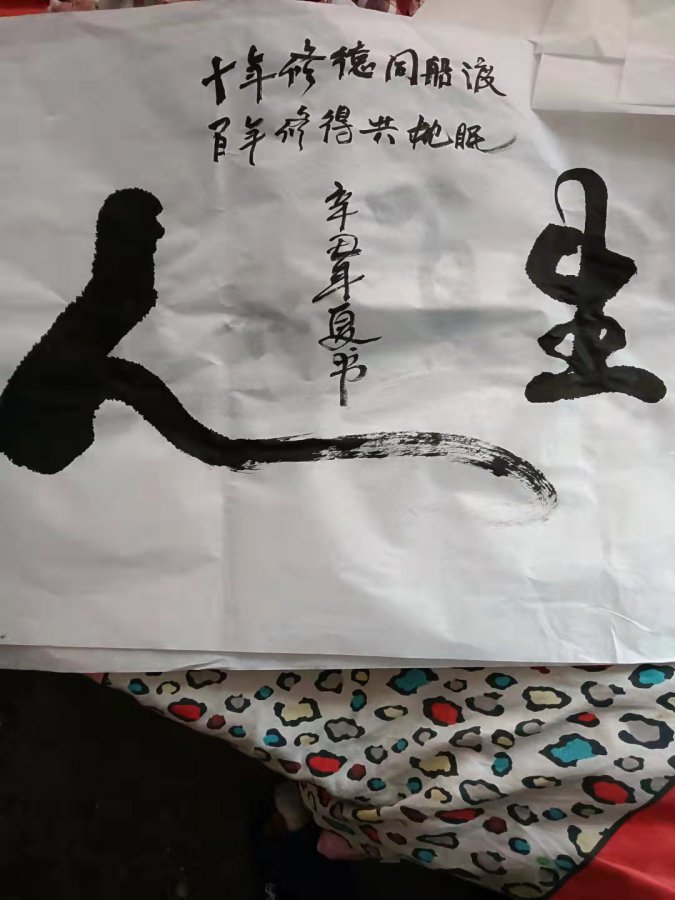 十年修德同船渡
百年修得共枕眠
辛丑年夏书
人生